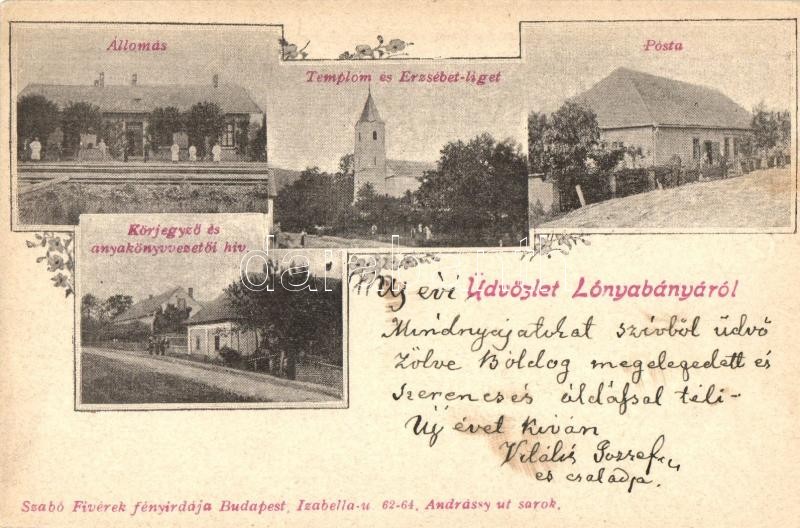 Állomás
Templom és Erzsébet-liget
Pósta
Körjegyző és
anyakönyvvezetői hiv.
darabanth.com
Új évi Üdvözlet Lónyabányáról
Mindnyájatokat szívből üdvö
zölve Boldog megelegedett és
szerencsés áldással teli-
Új évet kíván
Vitális József
és családja.
Szabó Fivérek fényirdája Budapest, Izabella-u 62-64, Andrássy ut sarok.